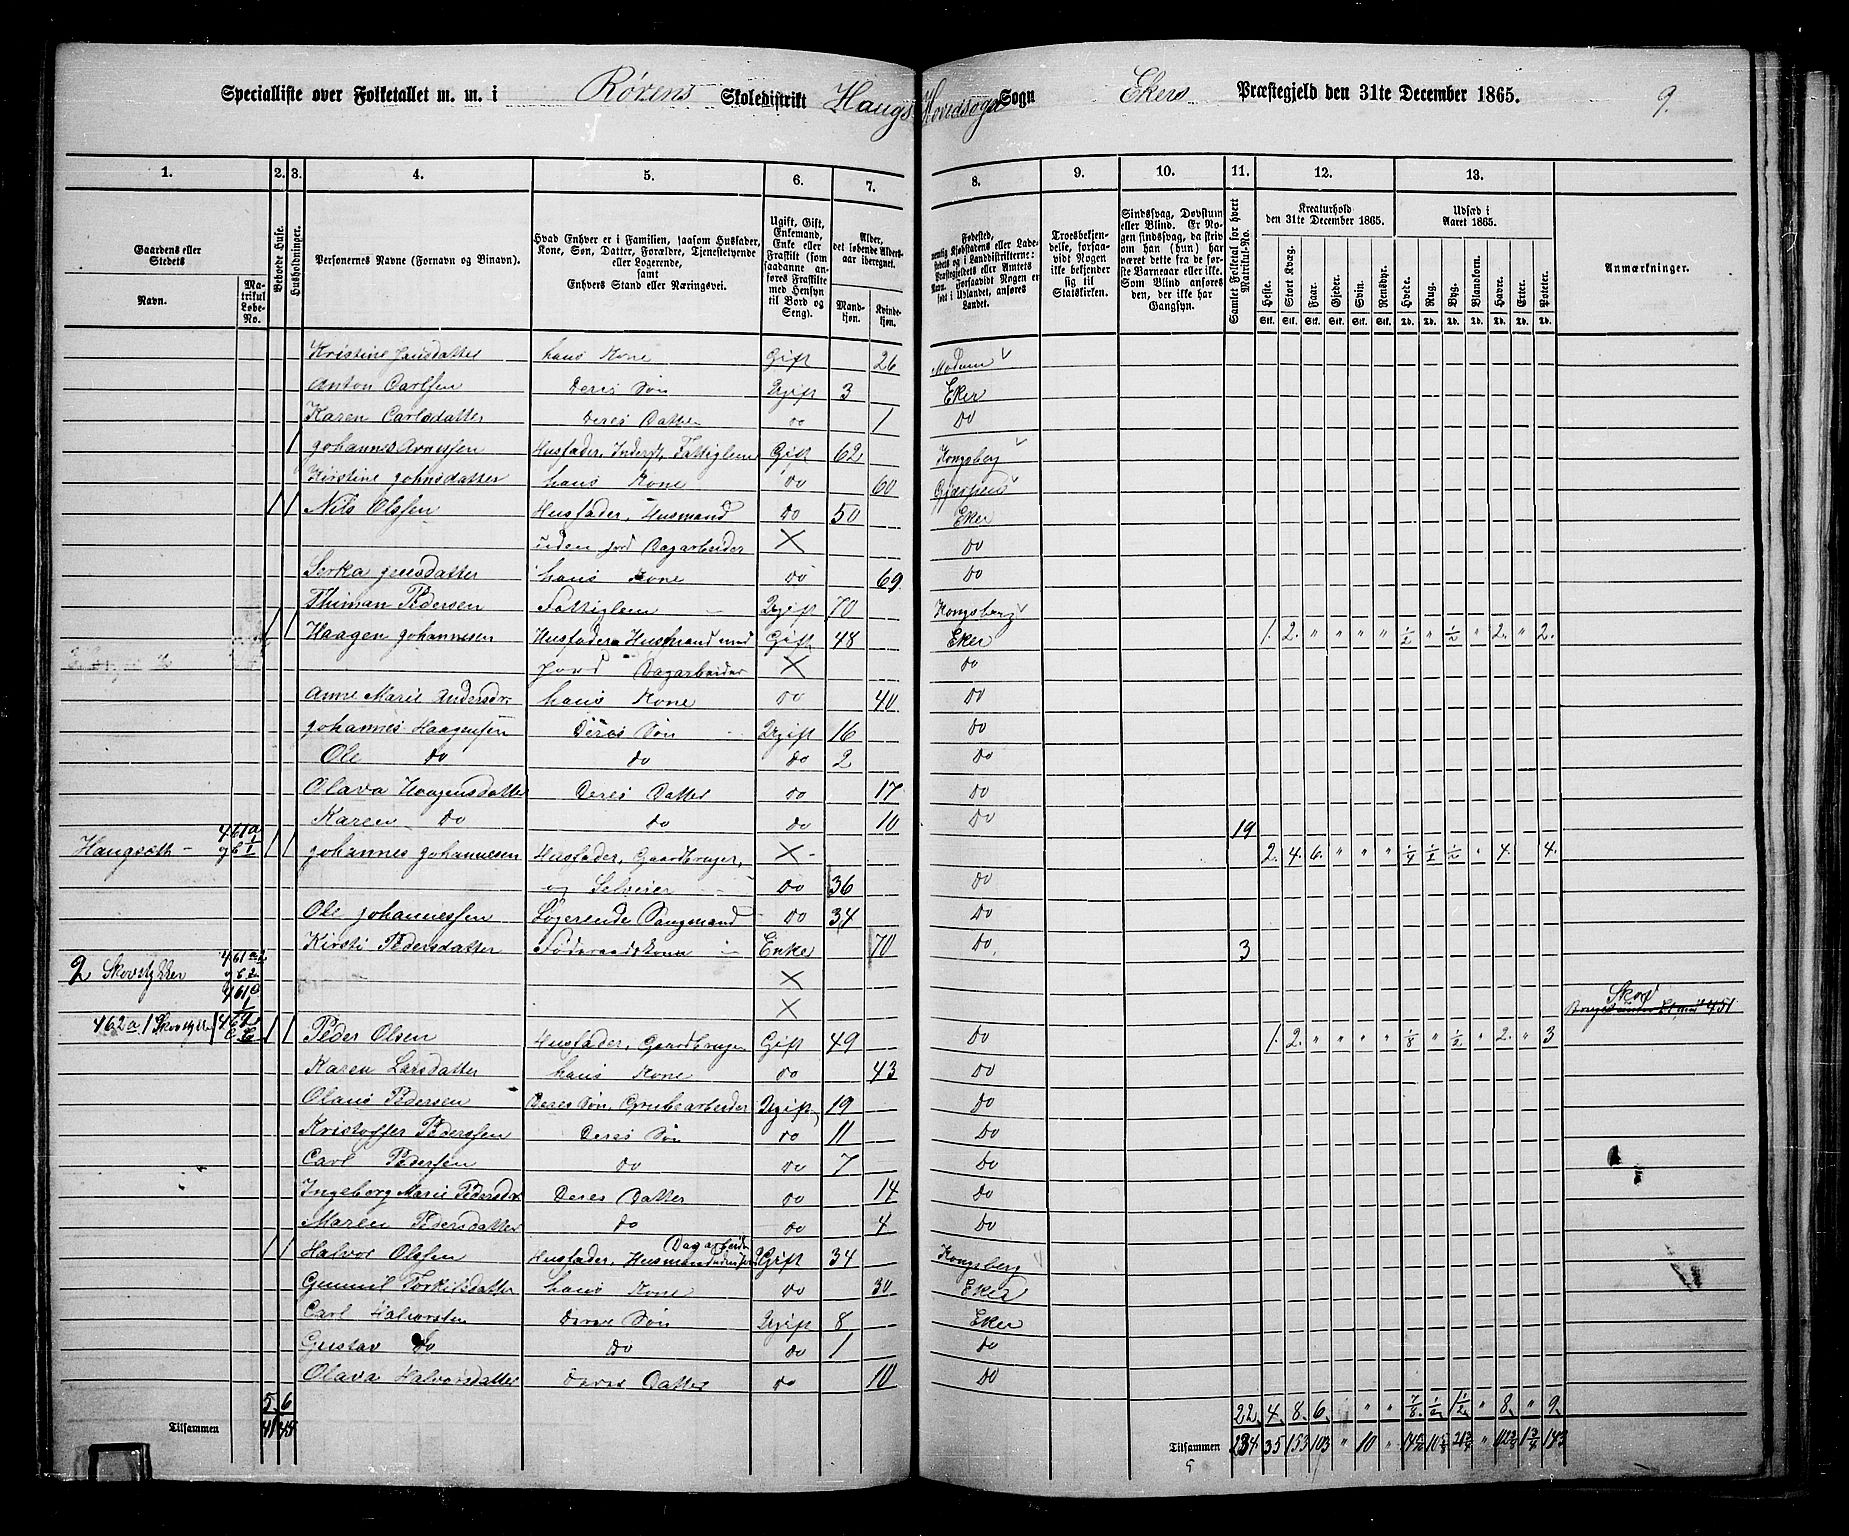 Specialliste over Folketallet m. m. i Rørens Skoledistrikt Haugs Hovedsogn Sogn Ekers Præstegjeld den 31te December 1865. 9.
1. 2. 3. 4. 5. 6. 7. 8. 9. 10. 11. 12. 13.
Gaardens eller Stedets
Navn. Matrikul Løbe-No.
Beboede Huse.
Husholdninger.
Personernes Navne (Fornavn og Binavn).
Hvad Enhver er i Familien, saasom Husfader, Kone, Søn, Datter, Forældre, Tjenestetyende eller Logerende, samt Enhvers Stand eller Næringsvei.
Ugift, Gift, Enkemand, Enke eller Fraskilt (som saadanne anføres Fraskilte med Hensyn til Bord og Seng).
Alder, det løbende Aldersaar iberegnet.
Mandkjøn. Kvindekjøn.
Fødested,
Troesbekjendelse, forsaavidt Nogen ikke bekjender sig til Statskirken.
Sindssvag, Døvstum eller Blind. Er Nogen sindssvag, da skriv om han (hun) har været dette fra de første Barneaar eller ikke. Som Blind ansøres den, der ikke har Gangsyn.
Samlet Folketal for hvert Matrikul-No.
Kreaturhold den 31te December 1865.
Heste. Stort Kvæg. Faar. Gjeder. Svin. Rensdyr.
Udsæd i Aaret 1865.
Hvede. Rug. Byg. Blandkorn. Havre. Erter. Poteter.
Anmærkninger.
Stk. Stk. Stk. Stk. Stk. Stk. Td. Td. Td. Td. Td. Td. Td.
Kristine Jansdatter hans Kone Gift 26 Modum
Anton Carlsen Deres Søn Ugift 3 Eker
Karen Carlsdatter Deres Datter do 1 Do
Johannes Arnessen Husfader, Inderst, Fattiglem Gift 62 Kongsberg
Kirstine Johnsdatter hans Kone do 60 Gjerpen
Nils Olsen Husfader, Husmand Do 50 Eker
uden Jord Dagarbeider Do
Jensdatter hans Kone do 69 Do
Thiman Pedersen Fattiglem Ugift 70 Kongsberg
Haagen Johannesen Husfader Husmand med Gift 48 Eker 1. 2. " " " " 1/2 " 1/2 " 2. " 2.
Jord Dagarbeider Do
Anne Marie Andersdr. hans Kone do 40 Do
Johannes Haagensen Deres Søn Ugift 16 Do
Ole Do do do 2 Do
Olava Haagensdatter Deres Datter do 17 Do
Karen Do do do 10 Do 19
Haugsæth 461a Johannes Johannesen Husfader, Gaardbruger, 2. 4. 6. " " " 1/4 1/2 1/2 " 4. 4.
og Selveier do 36 Do
Ole Johannessen Logerende Sangmand do 34 Do
Kirsti Pedersdatter Føderaadskone Enke 70 Do 3
2 Skovstykker 461
461
Skov
462a 1 Peder Olsen Husfader, Gaardbruger Gift 49 Do 1. 2. " " " " 1/8 " 1/2 " 2. " 3
Karen Larsdatter hans Kone do 43 Do
Olaus Pedersen Deres Søn, Grubearbeider Ugift 19 Do
Kristoffer Pedersen Deres Søn do 11 Do
Carl Pedersen do do 7 Do
Ingeborg Marie Pedersdr Deres Datter do 14 Do
Maren Pedersdatter do do 4 Do
(Dagarbeider
Halvor Olsen Husfader, Husmand uden Jord Gift 34 Kongsberg
Gunnil Torkilsdatter hans Kone do 30 Eker
Carl Halvorsen Deres Søn Ugift 8 Eker
Gustav Do Do do 1 Do
Olava Halvorsdatter Deres Datter do 10 Do
5 6 22 4 8 6 " " 7/8 1/2 1 1/2 " 8 " 9
Tilsammen 41 Tilsammen 234 35 153 103 " 10 " 143